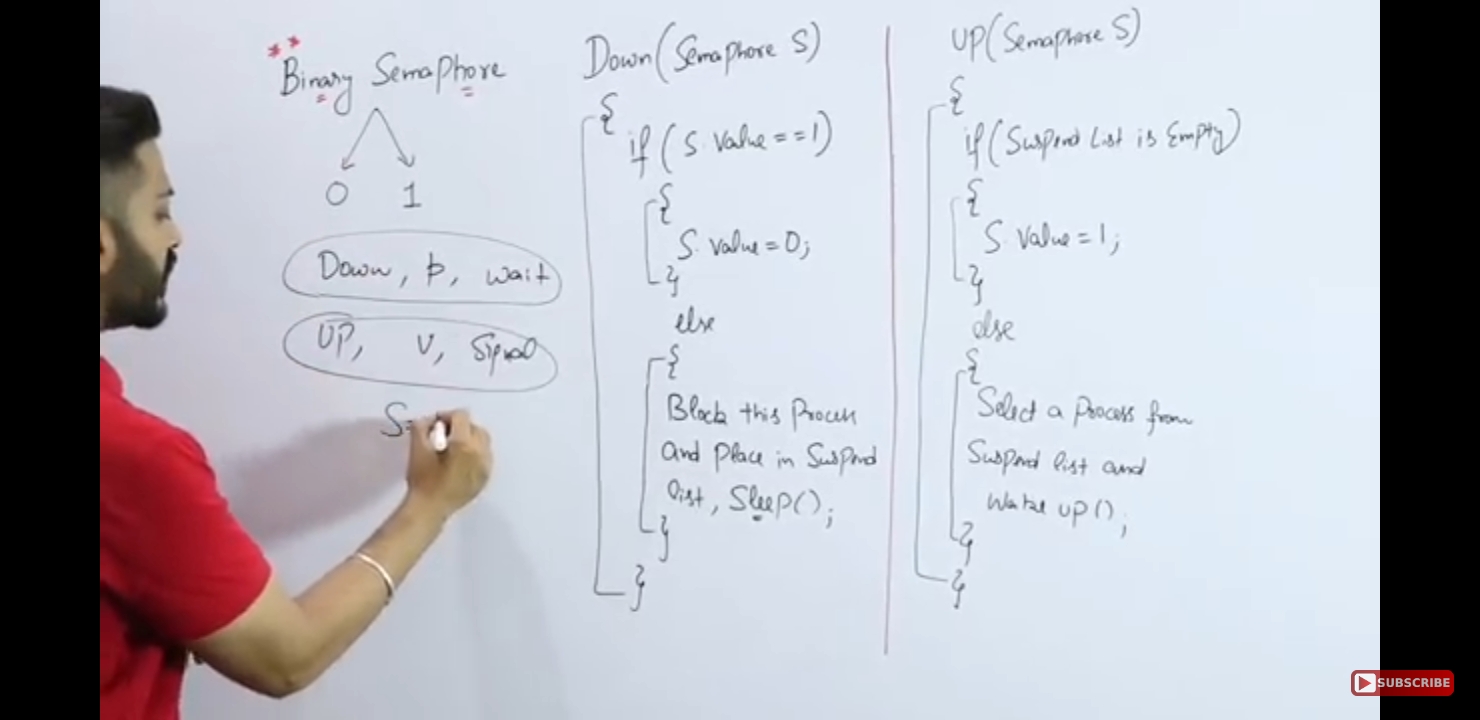 **
Binary Semaphore
0 1
Down, p, wait
UP, V, Signal
S=
Down(Semaphore S)
{
if (S. Value == 1)
{
S. Value = 0;
}
else
{
Block this Process
and Place in Suspend
list, Sleep();
}
}
UP(Semaphore S)
{
if (Suspend List is Empty)
{
S. Value = 1;
}
else
{
Select a Process from
Suspend list and
Wake up();
}
}
SUBSCRIBE